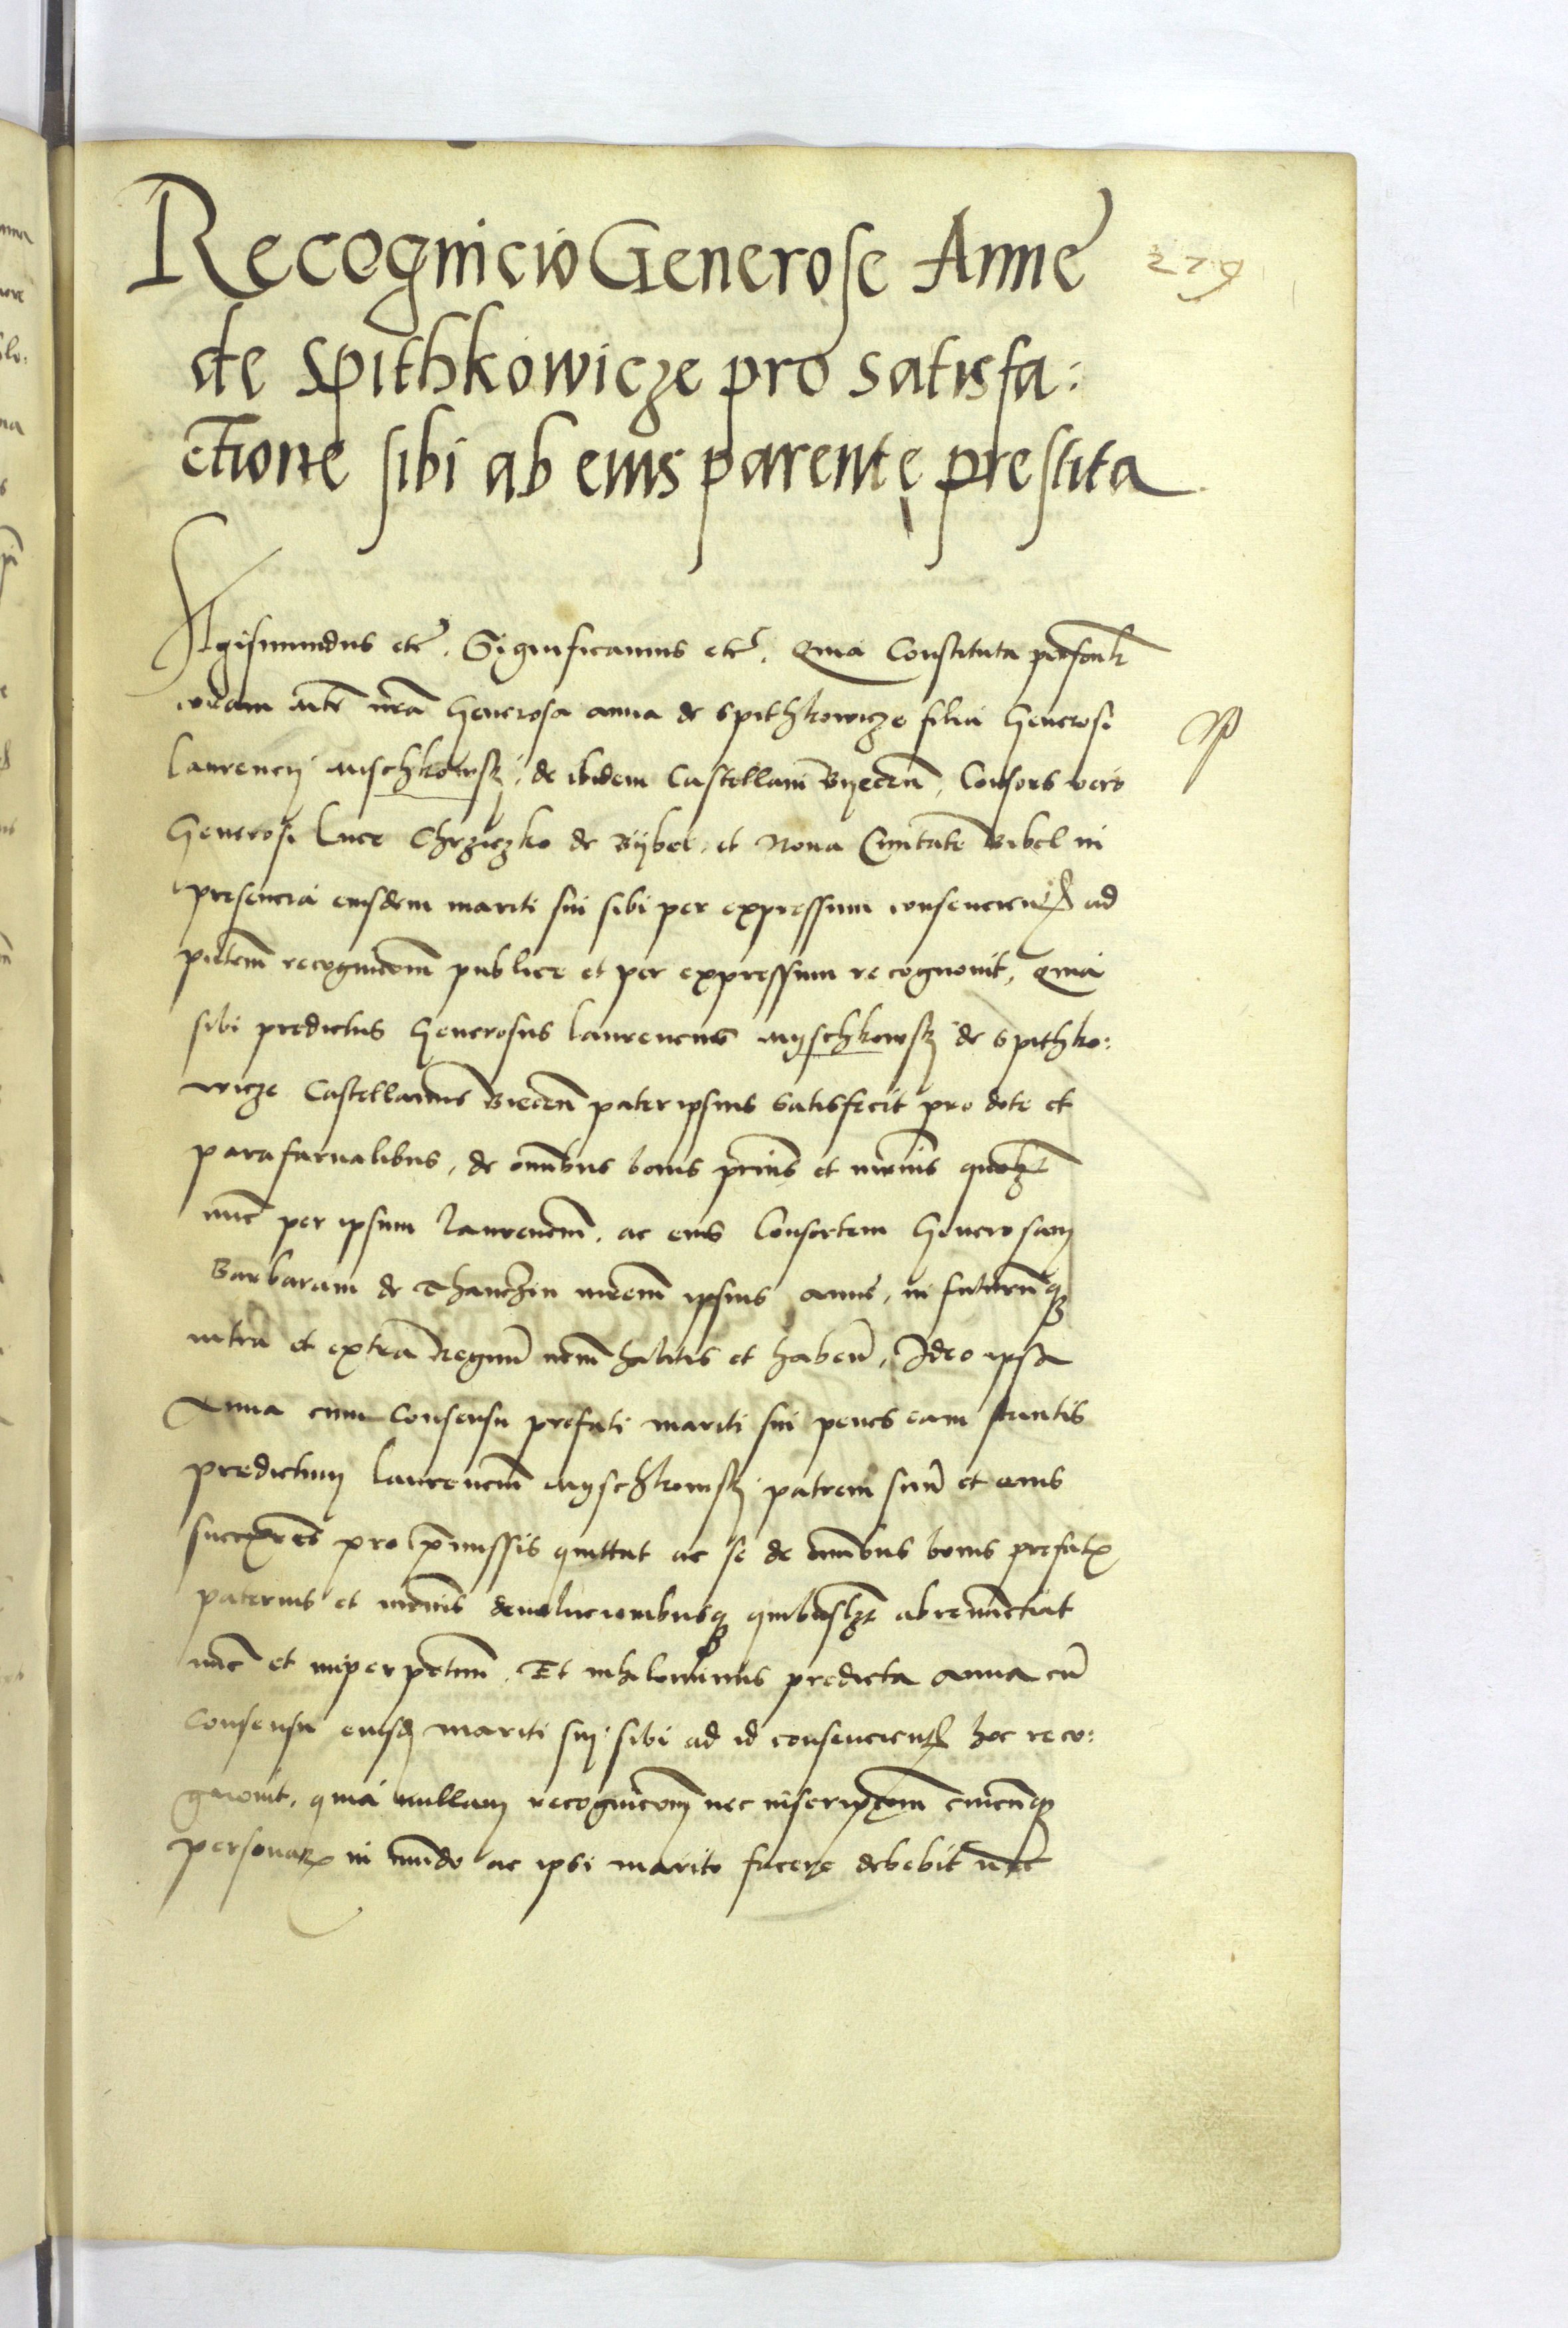 Recognicio Generose Anne
279
de Spithkowicze pro satisfa:
ctione sibi ab eius parente prestita
Sigismundus etc̃. Significamus etc̃. Quia Constituta personalr̃
coram Actis nr̃is Generosa anna de Spithkowicze filia Generosi
Laurencij Mischkowsky de ibidem Castellani Byecen̄, Consors vero
Generosi Luce Chrziczko de Bybel et Noua Ciuitate Bibel in
presencia eiusdem mariti sui sibi per expressum consencien̄ ad
recognicōm publice et per expressum recognouit, Quia
sibi predictus Generosus Laurencius Myschkowsky de Spithko:
wicze Castellanus Biecen̄ pater ipsius satisfecit pro dote et
parafarnalibus, de om̄ibus bonis pr̄nis et mr̄nis
nūc per ipsum Laurenciū, ac eius Consortem Generosam
Barbaram de Thanczin mr̄em ipsius Anne, in futurūq
intra et extra Regnū nr̄m habitis et haben̄, Ideo ipsa
Anna cum consensu prefati mariti sui penes eam stantis
predictum Laurenciū Myschkowsky patrem suū et eius
successores pro p̄missis quittat ac se de om̄ibus bonis prefatis
paternis et mr̄nis deuolucionibusq quibuslzt abrenūctiat
nūc et inperpetuū. Et nihilominus predicta Anna cū
consensu eiusd mariti suj sibi ad id consencien̄ hoc reco:
gnouit, quia nullam recognicōm nec inscripcōm cuicūq
personar in mūdo ac ipsi marito facere debebit nec